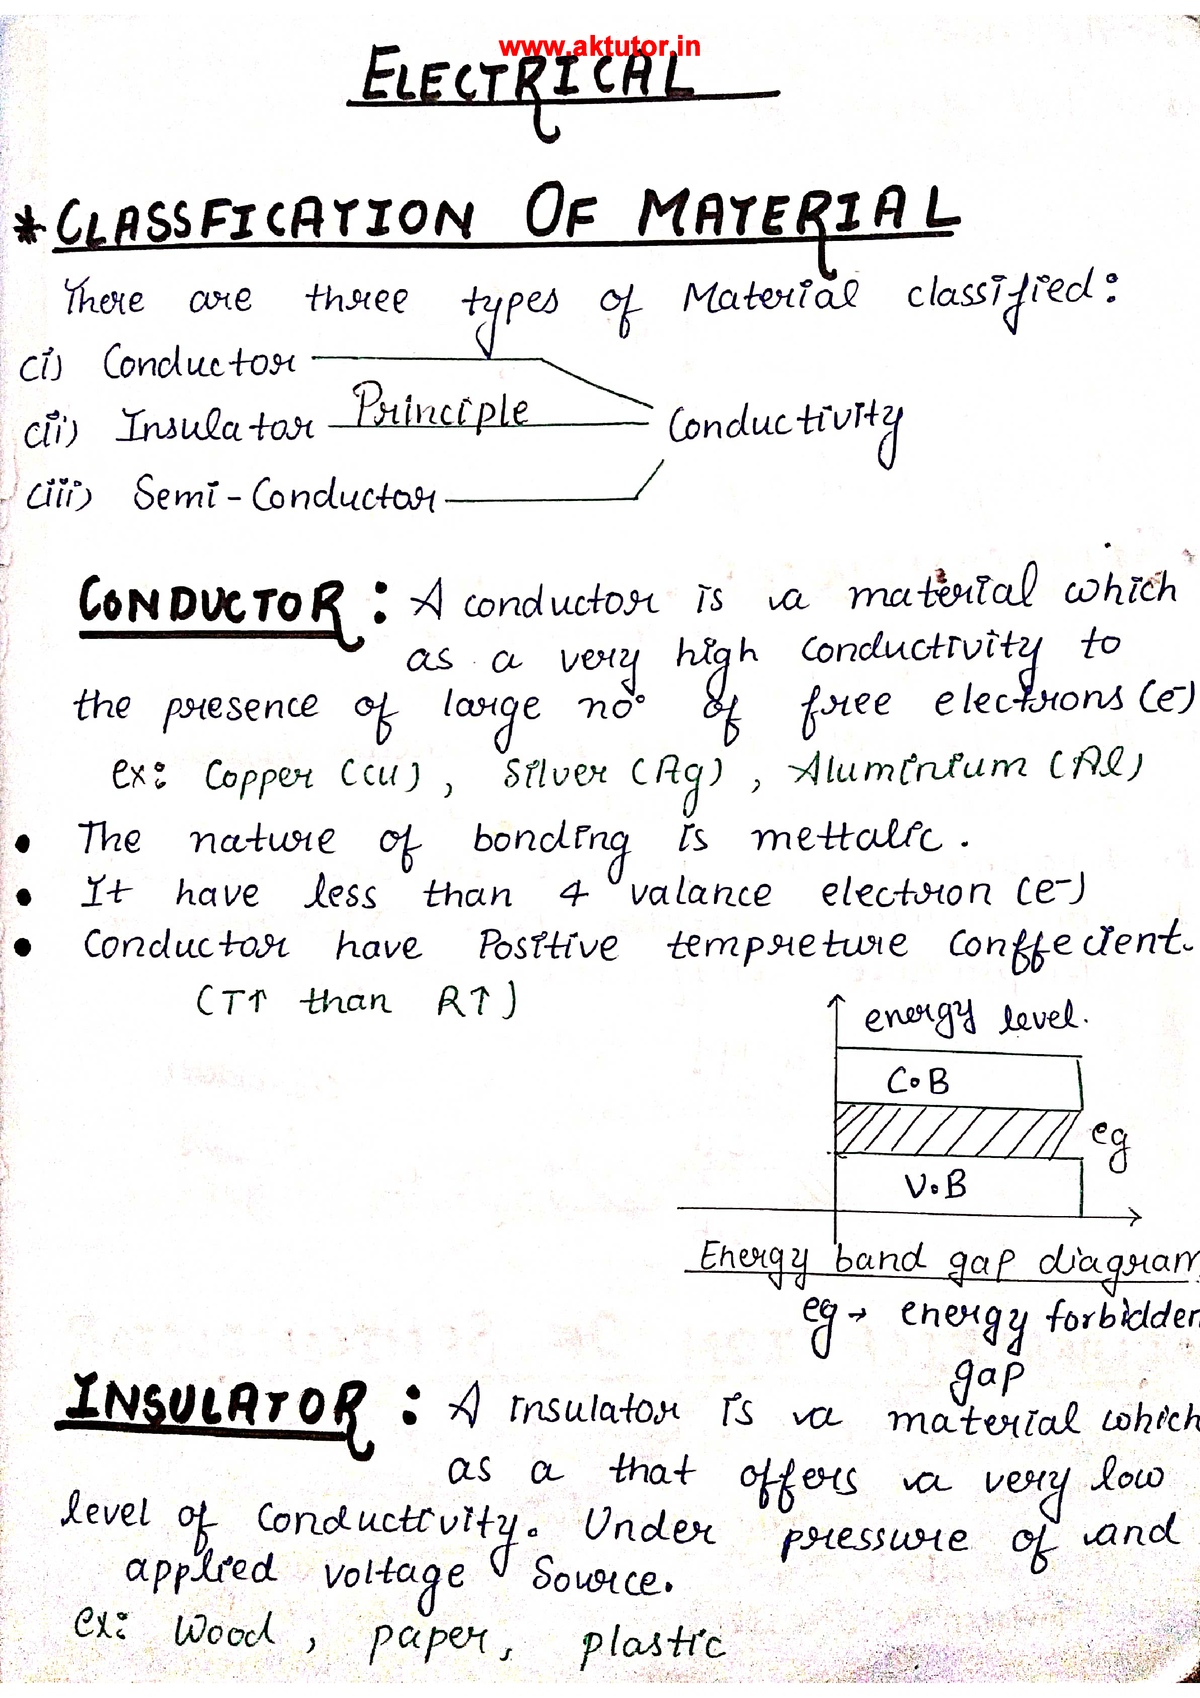 www.aktutor.in
ELECTRICAL
* CLASSFICATION OF MATERIAL
There are three types of Material classified:
(i) Conductor
(ii) Insulator Principle Conductivity
(iii) Semi-Conductor
CONDUCTOR: A conductor is a material which
as a very high conductivity to
the presence of large no° of free electrons (e-)
ex: Copper (cu), Silver (Ag), Aluminium (Al)
• The nature of bonding is mettalic.
• It have less than 4 valance electron (e-)
• Conductor have Positive tempreture conffecient.
(T↑ than R↑)
energy level.
C.B
eg
V.B
Energy band gap diagram
eg → energy forbidden
gap
INSULATOR: A insulator is a material which
as a that offers a very low
level of conductivity. Under pressure of and
applied voltage Source.
ex: Wood, paper, plastic